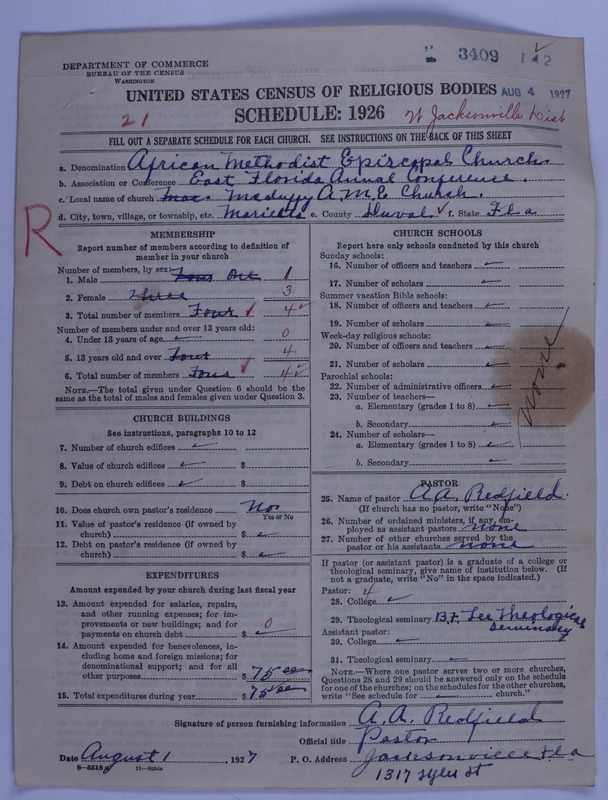 3409 142
DEPARTMENT OF COMMERCE
BUREAU OF THE CENSUS
WASHINGTON
UNITED STATES CENSUS OF RELIGIOUS BODIES AUG 4 1927
SCHEDULE: 1926
21 Jacksonville Dist
FILL OUT A SEPARATE SCHEDULE FOR EACH CHURCH. SEE INSTRUCTIONS ON THE BACK OF THIS SHEET
a. Denomination African Methodist Episcopal Church.
b. Association or Conference East Florida Annual Conference.
c. Local name of church A.M.E. Church.
d. City, town, village, or township, etc. Marietta e. County Duval f. State Fla
R
MEMBERSHIP
Report number of members according to definition of
member in your church
Number of members, by sex:
1. Male 1
2. Female Three 3
3. Total number of members Four 4
Number of members under and over 13 years old:
4. Under 13 years of age 0
5. 13 years old and over Four 4
6. Total number of members Four 4
NOTE.—The total given under Question 6 should be the
same as the total of males and females given under Question 3.
CHURCH BUILDINGS
See instructions, paragraphs 10 to 12
7. Number of church edifices
8. Value of church edifices $
9. Debt on church edifices $
10. Does church own pastor's residence No
Yes or No
11. Value of pastor's residence (if owned by
church) $
12. Debt on pastor's residence (if owned by
church) $
EXPENDITURES
Amount expended by your church during last fiscal year
13. Amount expended for salaries, repairs,
and other running expenses; for im-
provements or new buildings; and for
payments on church debt $ 0
14. Amount expended for benevolences, in-
cluding home and foreign missions; for
denominational support; and for all
other purposes $ 75 00
15. Total expenditures during year $ 75 00
CHURCH SCHOOLS
Report here only schools conducted by this church
Sunday schools:
16. Number of officers and teachers
17. Number of scholars
Summer vacation Bible schools:
18. Number of officers and teachers
19. Number of scholars
Week-day religious schools:
20. Number of officers and teachers
21. Number of scholars
Parochial schools:
22. Number of administrative officers
23. Number of teachers—
a. Elementary (grades 1 to 8)
b. Secondary
24. Number of scholars—
a. Elementary (grades 1 to 8)
b. Secondary
None
PASTOR
25. Name of pastor A. A. Redfield.
(If church has no pastor, write "None")
26. Number of ordained ministers, if any, em-
ployed as assistant pastors none
27. Number of other churches served by the
pastor or his assistants none
If pastor (or assistant pastor) is a graduate of a college or
theological seminary, give name of institution below. (If
not a graduate, write "No" in the space indicated.)
Pastor: 4
28. College
29. Theological seminary B.F. Lee Theological
Seminary
Assistant pastor:
30. College
31. Theological seminary
NOTE.—Where one pastor serves two or more churches,
Questions 28 and 29 should be answered only on the schedule
for one of the churches; on the schedules for the other churches,
write "See schedule for church."
Signature of person furnishing information A. A. Redfield
Official title Pastor
Date August 1, 1927 P. O. Address Jacksonville Fla
1317 Tyler St
8—5518 11—8034a